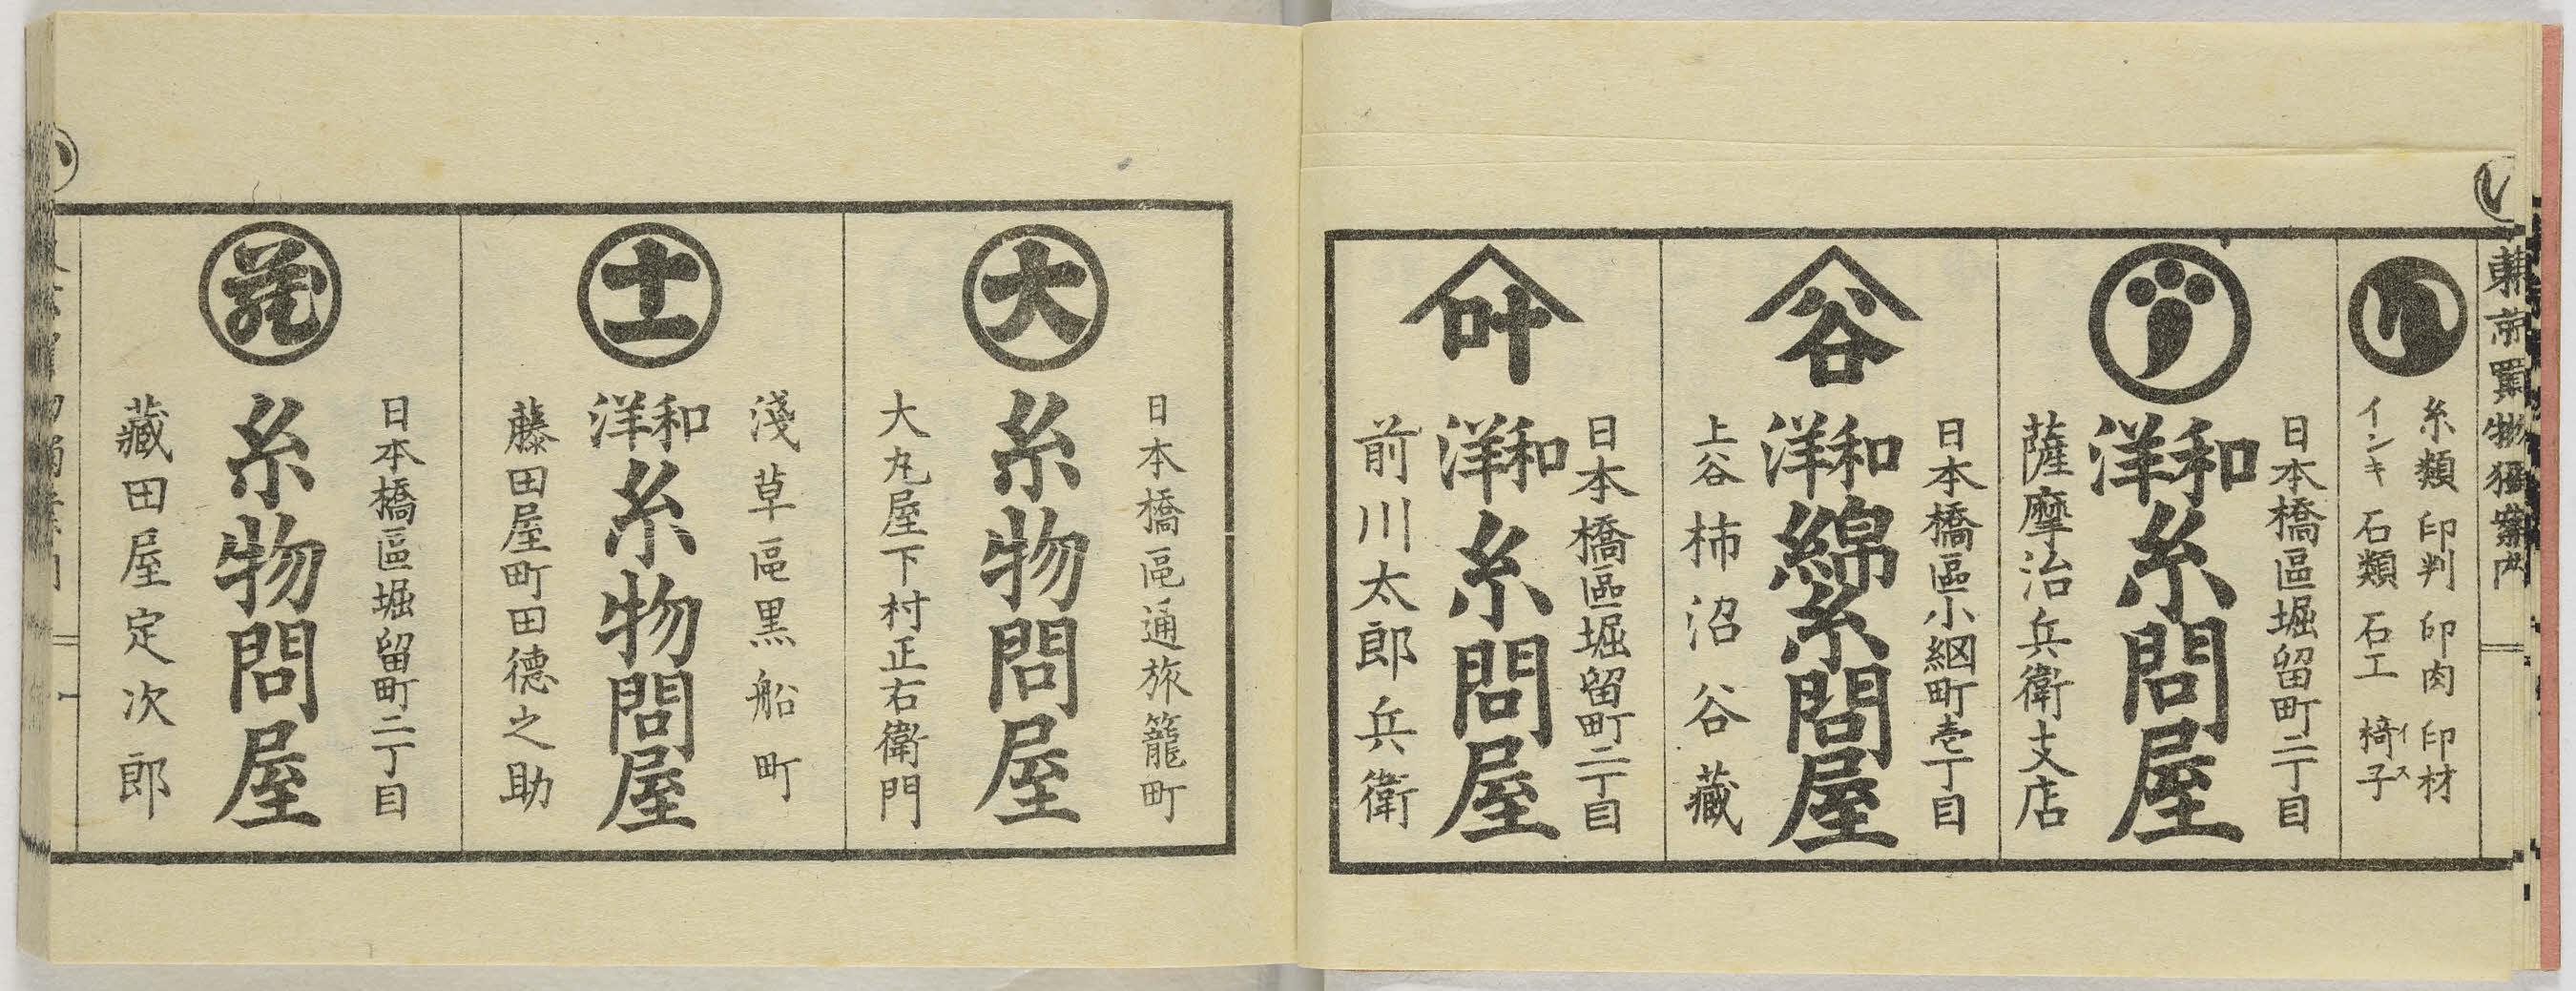 い
糸類 印判 印肉 印材
インキ 石類 石工 椅子
イス
日本橋區堀留町二丁目
和洋糸問屋
薩摩治兵衛支店
谷
日本橋區小網町壱丁目
和洋綿糸問屋
上谷 柿沼谷藏
叶
日本橋區堀留町二丁目
和洋糸問屋
前川太郎兵衛
大
日本橋區通旅籠町
糸物問屋
大丸屋下村正右衛門
淺草區黒船町
和洋糸物問屋
藤田屋町田徳之助
日本橋區堀留町二丁目
糸物問屋
藏田屋定次郎